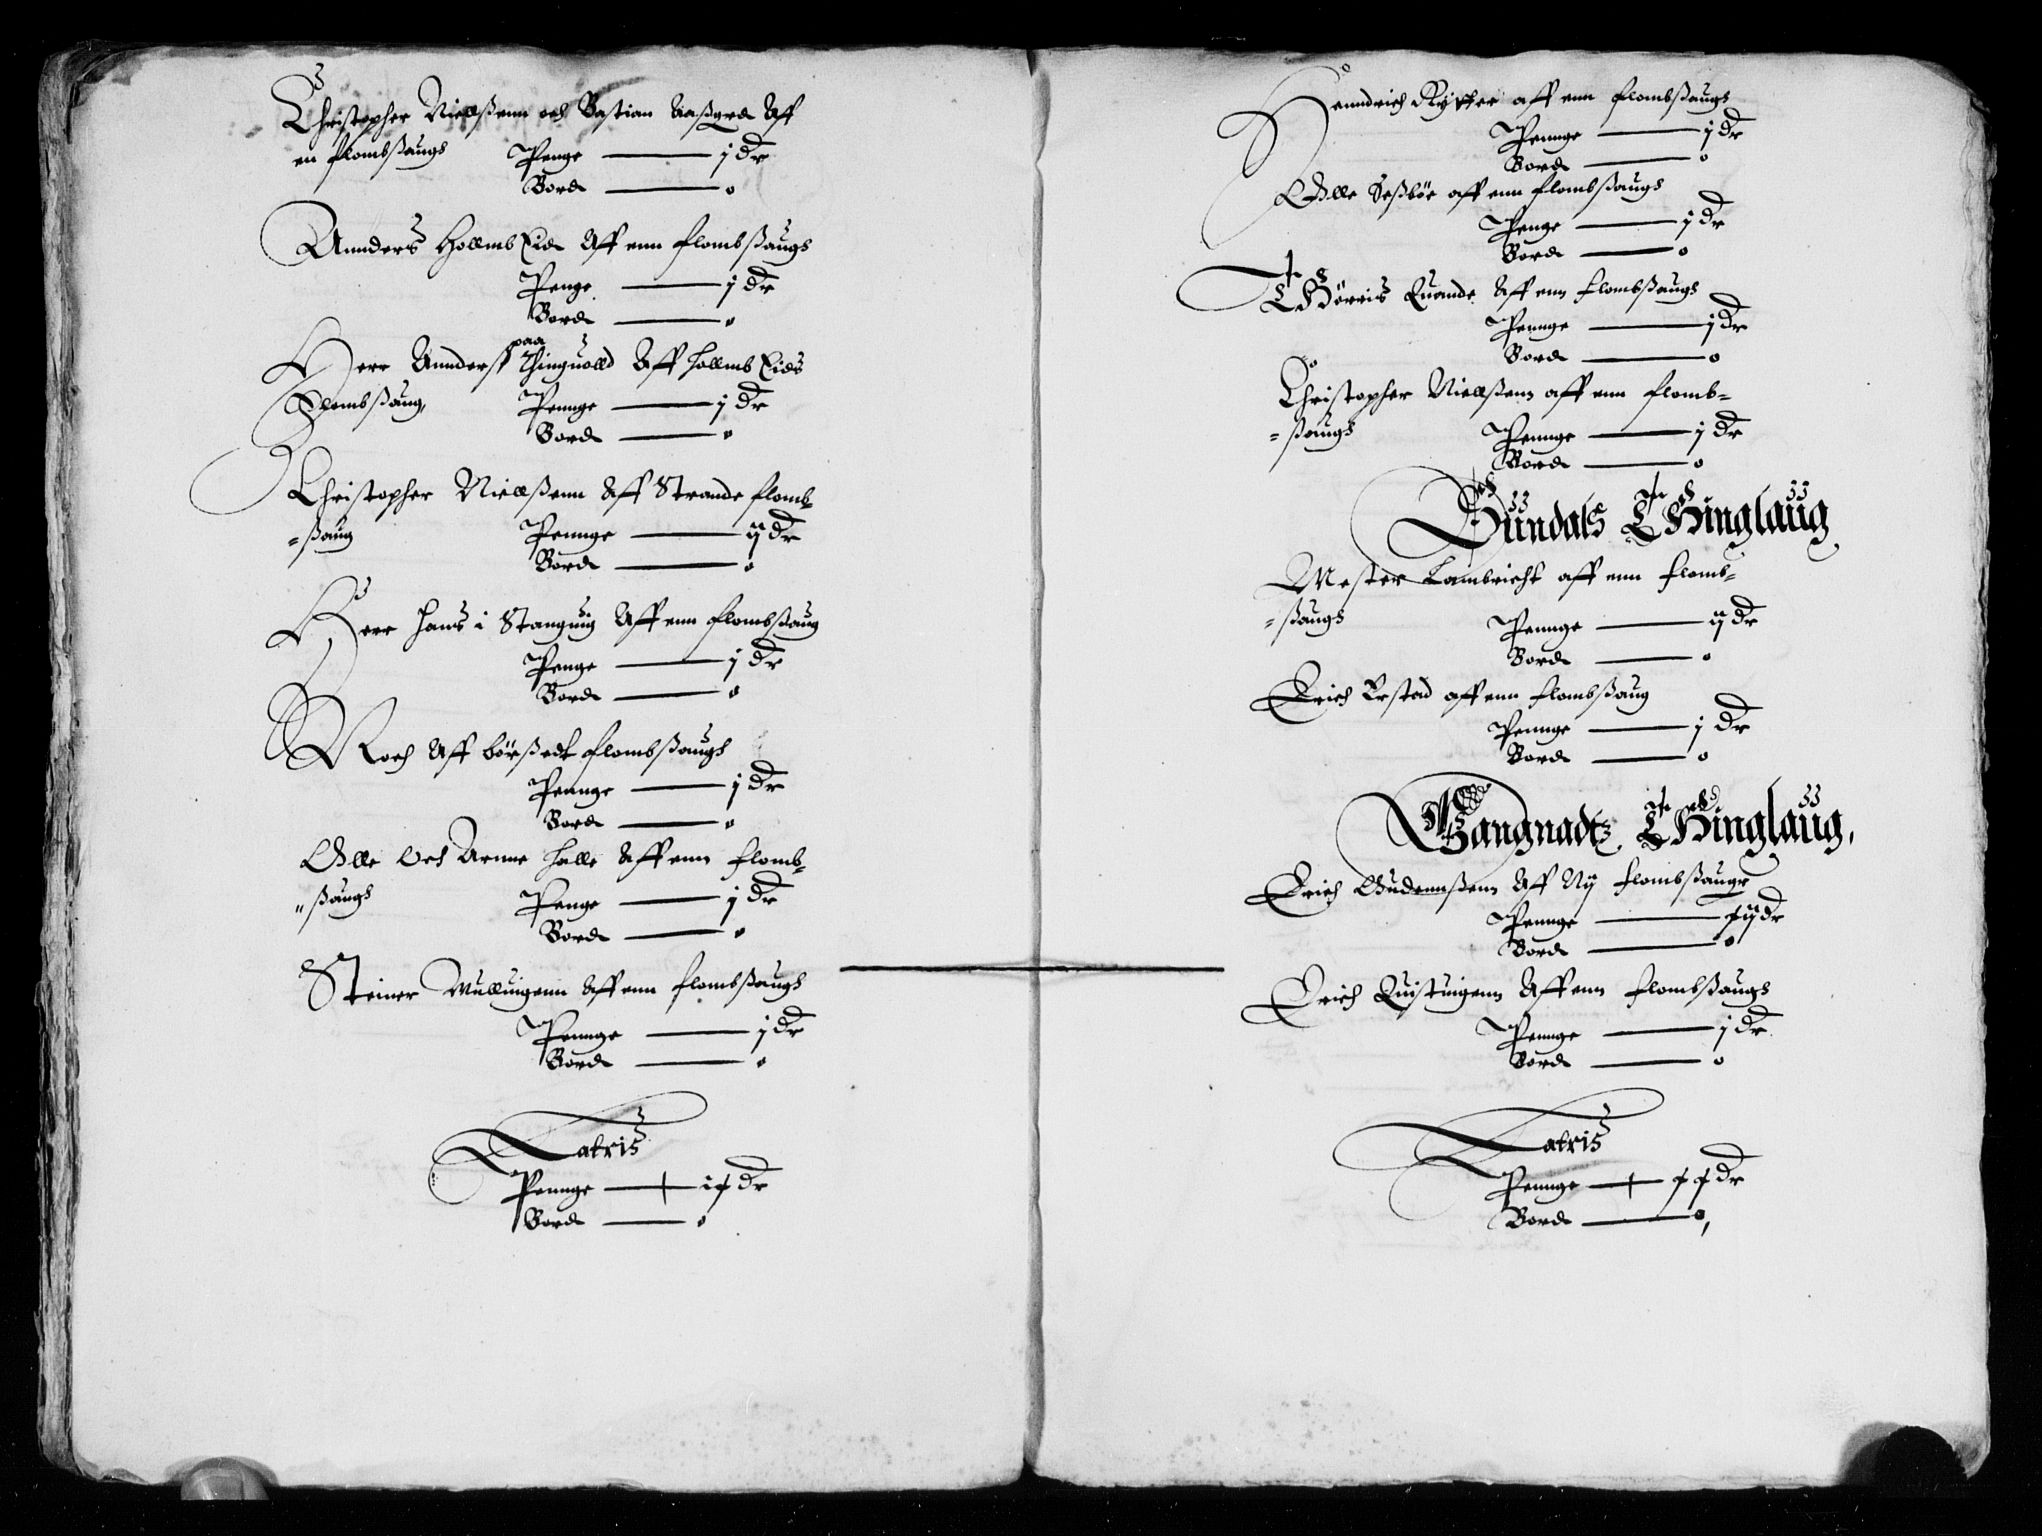 Christopher Nielßenn och Bastian Aaßgrd Aff
en flombßaugh Penge — j dr
Bord — 0
Annders Hollmb Eid Aff enn flombßaugh
Penge — j dr
Bord — 0
Herr Annders paa Thinguolld Aff Hollmb Eids
flombßaug, Pennge — j dr
Bord — 0
Christopher Nielßenn Aff Strande flomb-
-ßaug Pennge — ij dr
Bord — 0
Herr Hans i Stanguig Aff enn flombßaug
Penge — j dr
Bord — 0
Moch Aff börßedt flombßaugh
Pennge — j dr
Bord — 0
Olle och Arnne Halle Aff enn flomb-
-ßaugh Penge — j dr
Bord — 0
Steiner Mulluigenn Aff enn flombßaugh
Pennge — j dr
Bord — 0
Latris
Pennge — ix dr
Bord — 0
Henndrich Rytter aff enn flombßaugh
Pennge — j dr
Bord — 0
Olle Seßböe aff enn flombßaugh
Penge — j dr
Bord — 0
Thörris Quande Aff enn flombßaugh
Pennge — j dr
Bord — 0
Christopher Nielßenn aff enn flomb-
-ßaugh Pennge — j dr
Bord — 0
Sündals Thinglaug
Mester Lambricht aff enn flomb-
-ßaugh Pennge — ij dr
Bord — 0
Erich Erstad aff enn flombßaug
Pennge — j dr
Bord — 0
Gangnadtz Thinglaug,
Erich Gudennßenn Aff Nij flombßauger
Pennge — xij dr
Bord — 0
Erich Quistuigenn Aff enn flombßaugh
Pennge — j dr
Bord — 0
Latris
Pennge — xx dr
Bord — 0,